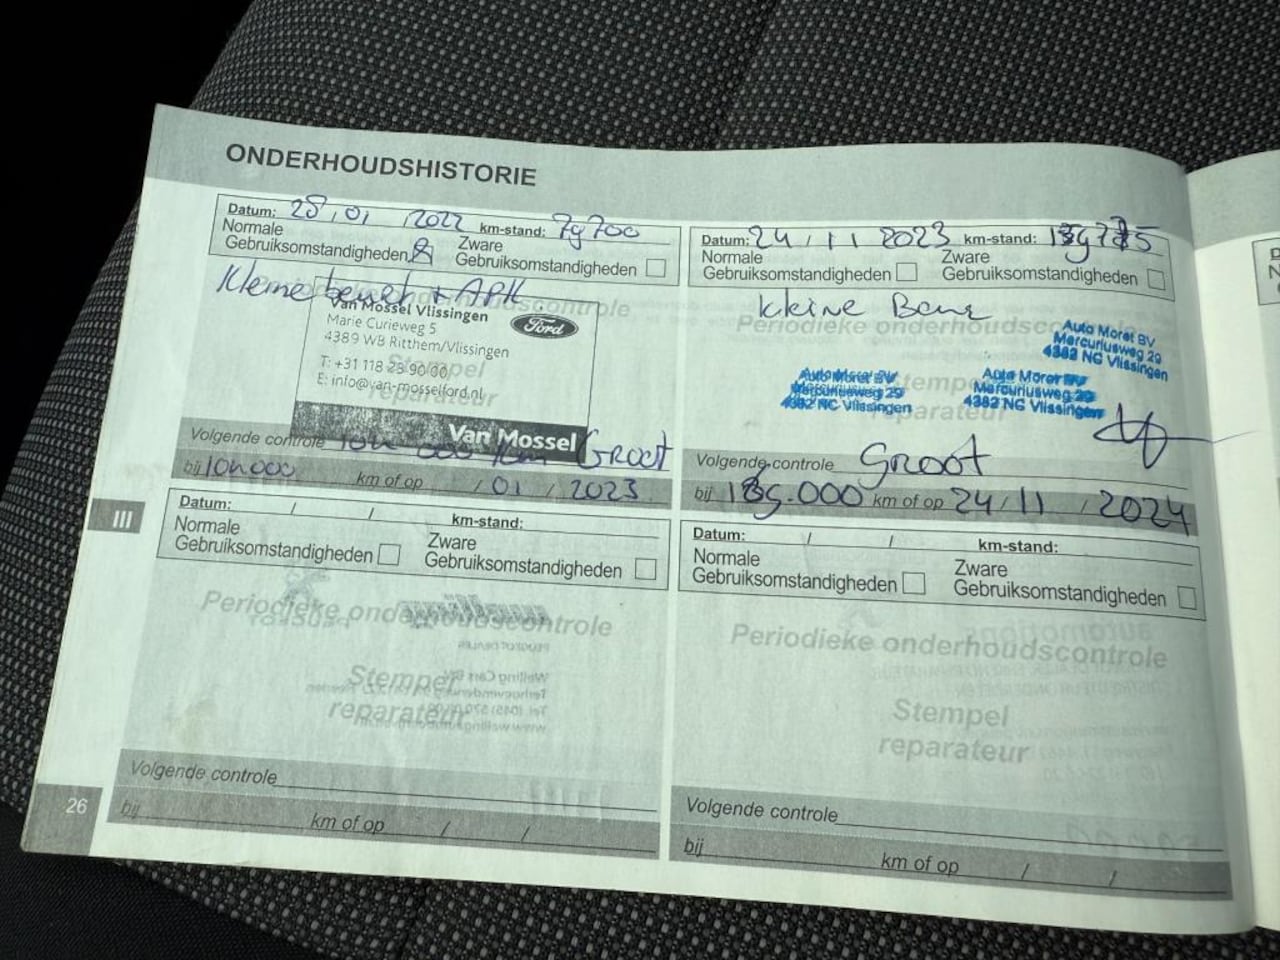 ONDERHOUDSHISTORIE
Datum: 28 / 01 / 2022 km-stand: 79700
Normale Gebruiksomstandigheden
Zware Gebruiksomstandigheden
Kleine beurt + APK
Periodieke onderhoudscontrole
Van Mossel Vlissingen
Marie Curieweg 5
4389 WB Ritthem/Vlissingen
T: +31 118
E: info@van-mosselford.nl
Ford
Stempel
reparateur
Van Mossel
Volgende controle Groot
bij km of op / 01 / 2023
Datum: 24 / 11 2023 km-stand:
Normale Gebruiksomstandigheden
Zware Gebruiksomstandigheden
kleine
Periodieke onderhoudscontrole
Auto Moret BV
Mercuriusweg 29
4382 NG Vlissingen
Auto Moret BV
Mercuriusweg 29
4382 NG Vlissingen
Auto Moret BV
Mercuriusweg 29
4382 NG Vlissingen
Stempel
reparateur
Volgende controle Groot
bij km of op 24 / 11 / 2024
III
Datum: / / km-stand:
Normale Gebruiksomstandigheden
Zware Gebruiksomstandigheden
Periodieke onderhoudscontrole
Stempel
reparateur
Volgende controle
bij km of op / /
Datum: / / km-stand:
Normale Gebruiksomstandigheden
Zware Gebruiksomstandigheden
Periodieke onderhoudscontrole
Stempel
reparateur
Volgende controle
bij km of op / /
26